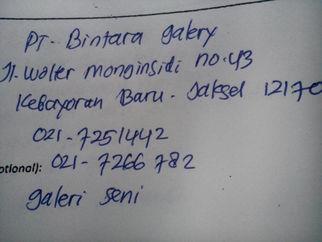 PT- Bintara galery
Jl. Walter monginsidi no.43
Kebayoran Baru - Jaksel 12170
021- 7251442
otional): 021- 7266 782
galeri seni